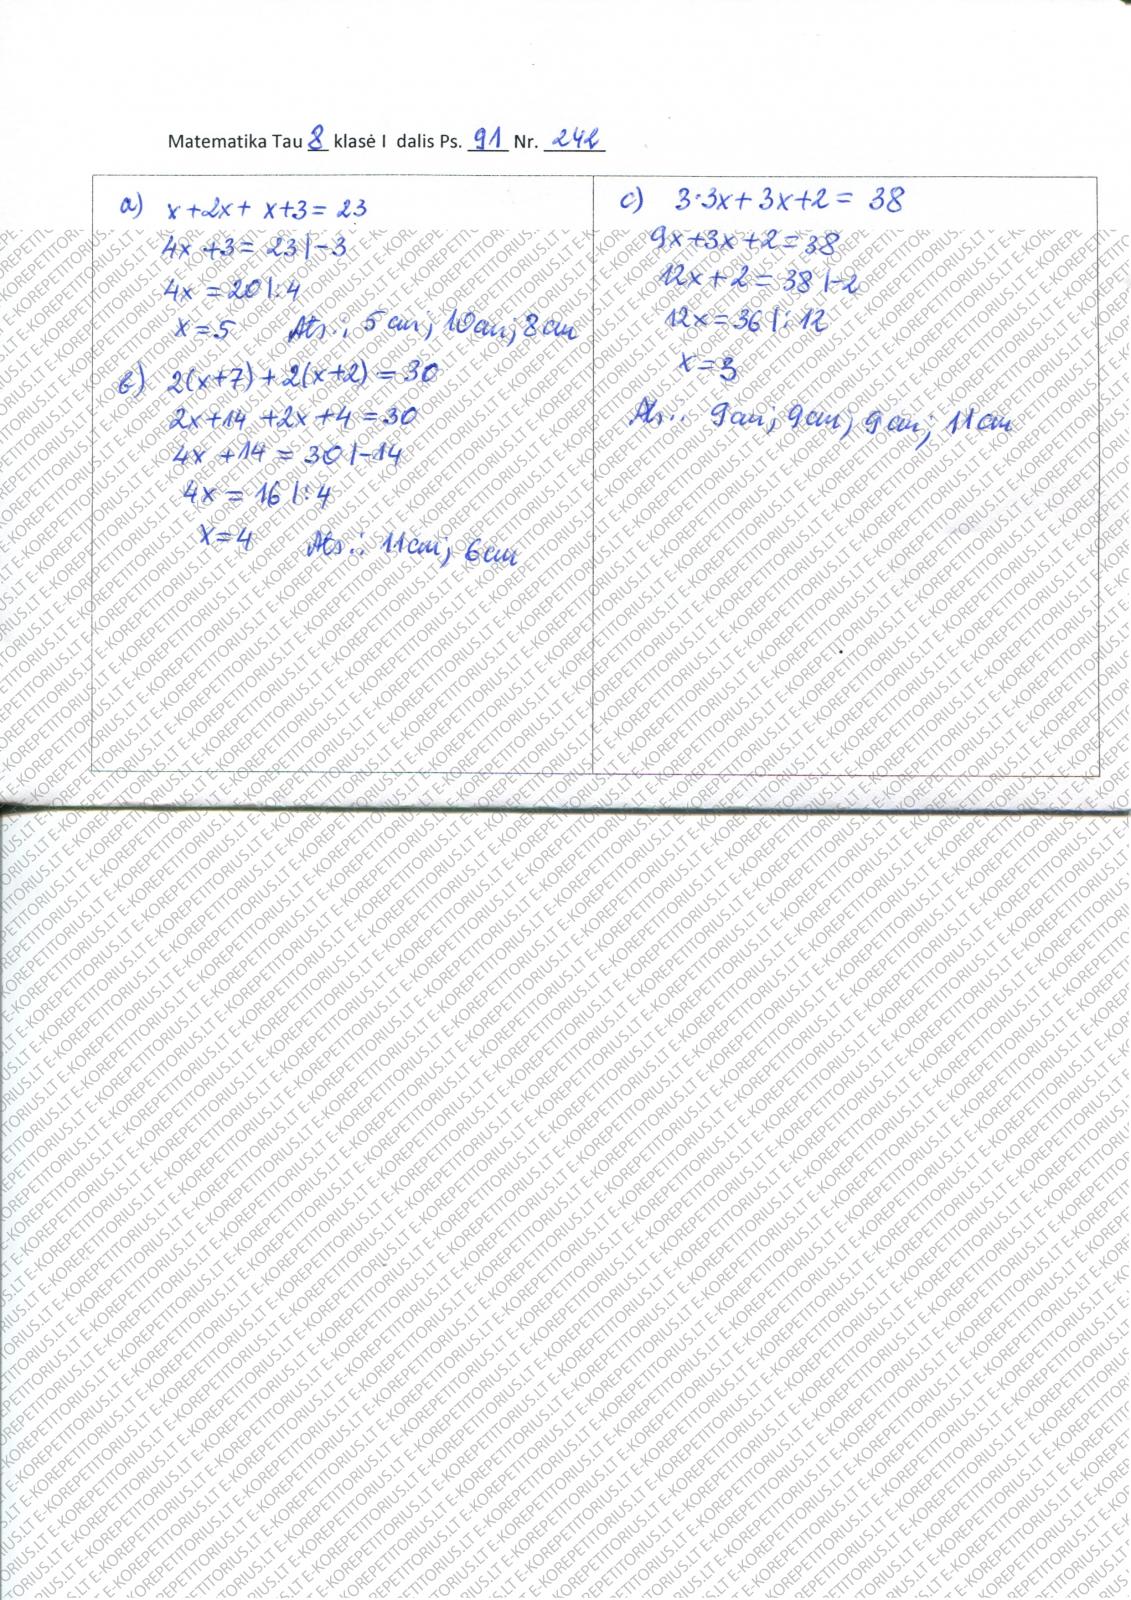 Matematika Tau 8 klasė I dalis Ps. 91 Nr. 242
a) x+2x+ x+3= 23
4x +3= 23 |-3
4x = 20 |:4
x=5 Ats.: 5 cm; 10cm; 8cm
b) 2(x+7)+2(x+2)=30
2x+14 +2x+4=30
4x +14 = 30 |-14
4x = 16 |:4
x=4 Ats.: 11cm; 6cm
c) 3·3x+3x+2= 38
9x+3x+2=38
12x+2=38 |-2
12x=36 |:12
x=3
Ats.: 9cm; 9cm; 9cm; 11cm
E-KOREPETITORIUS.LT